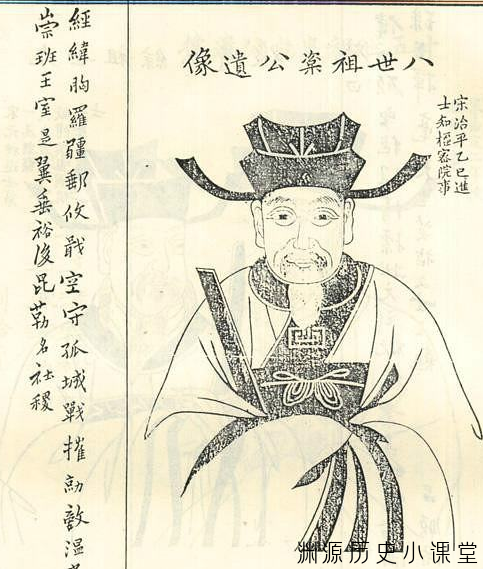 八世祖栥公遺像
宋治平乙巳進
士知樞密院事
經緯胸羅疆郵攸戢空守孤城戰摧勍敵溫
崇班王室是翼垂裕後昆勒名社稷
渊源历史小课堂